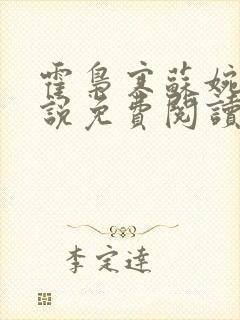 霍梟寒蘇婉
說免費閱讀
李定達